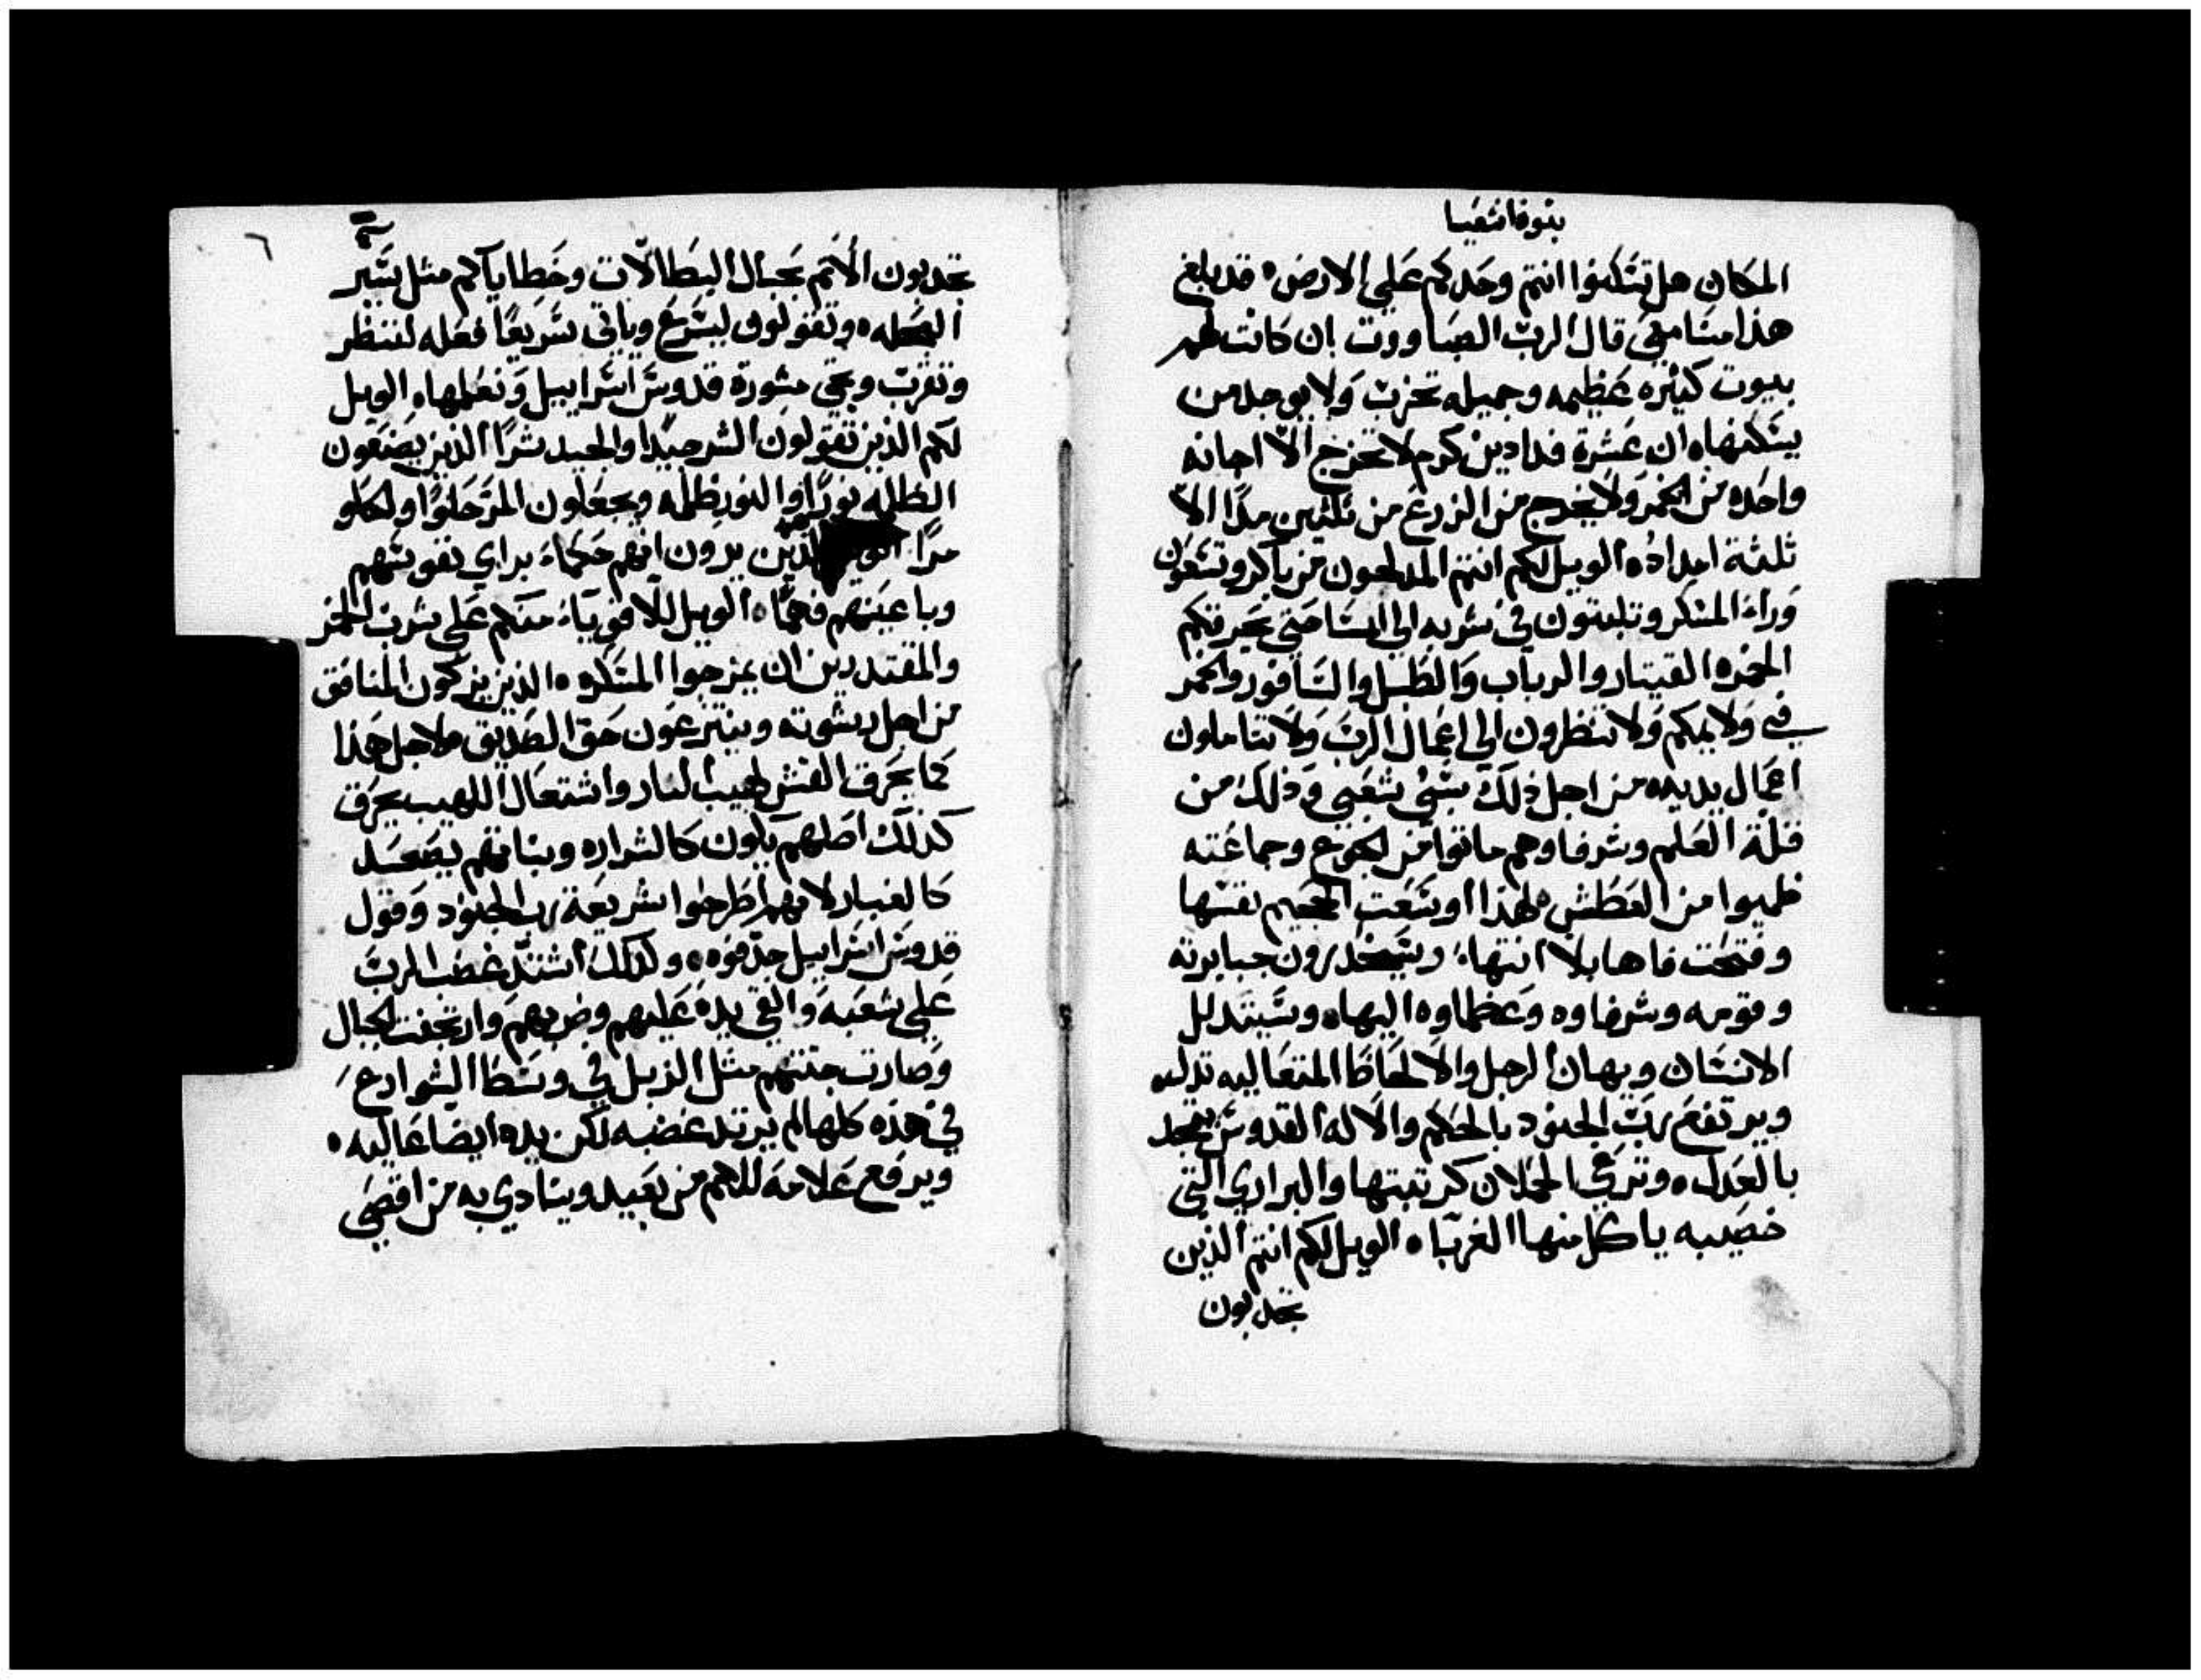 بنوة اشعيا
المكان هل تسكنوا انتم وحدكم علي الارض ه قد بلغ
هذا مسامعي قال الرب الصباووت ان كانت لهم
بيوت كثيره عظيمه وجميله تخرب ولا يوجد من
يسكنها ه ان عشرة فدادين كرم لا تخرج الا اجانه
واحده من الخمر ولا يخرج من الزرع من ثلثين مدا الا
ثلثة امداد ه الويل لكم انتم المدلجون من باكر وتسعون
وراء المسكر وتلبتون في شربه الي المسا حتي يحرقكم
الخمر ه القيتار والرباب والطبل والسافور والخمر
في ولايمكم ولا تنظرون الي اعمال الرب ولا تتاملون
اعمال يديه ه من اجل ذلك سبي شعبي وذلك من
قلة العلم وشرفاوهم ماتوا من الجوع وجماعته
ظميوا من العطش ه لهذا اوسعت الجحيم نفسها
وفتحت فاها بلا انتهاء وسينحدرون جبابرته
وقومه وشرفاوه وعظماوه اليها ه وسيتدلل
الانسان ويهان الرجل والالحاظ المتعاليه تدلـه
ويرتفع رب الجنود بالحكم والاله القدوس يتمجد
بالعدل ه وترعي الحملان كرتبتها والبراري التي
خصيبه ياكل منها الغربا ه الويل لكم انتم الذين
تجدبون
٦
تجدبون الاتم بحبال البطالات وخطاياكم مثل سير
العجله ه وتقولون ليسرع وياتي سريعا فعله لننظر
وتقرب وتجي مشورة قدوس اسراييل ونعلمها ه الويل
لكم الذين تقولون الشر جيدا والجيد شرا الذين يصنعون
الظلمه نورا والنور ظلمه ويجعلون المر حلوا والحلو
مرا الويل الذين يرون انهم حكماء براي نفوسهم
وباعينهم فهما ه الويل للاقوياء منكم علي شرب الخمر
والمقتدرين ان يمزجوا المسكر ه الذين يزكون المنافق
من اجل رشوته وينتزعون حق الصديق ولاجل هذا
كما يحرق القش لهيب النار واشتعال اللهيب يحرق
كذلك اصلهم يكون كالشراره ونباتهم يصعد
كالغبار لانهم اطرحوا شريعة رب الجنود وقول
قدوس اسراييل جدفوه ه ولذلك اشتد غضب الرب
علي شعبه والقي يده عليهم وضربهم وارتجفت الجبال
وصارت جتتهم مثل الزبل في وسط الشوارع
في هذه كلها لم يرتد غضبه لكن يده ايضا عاليه ه
ويرفع علامه للامم من بعيد وينادي به من اقصي